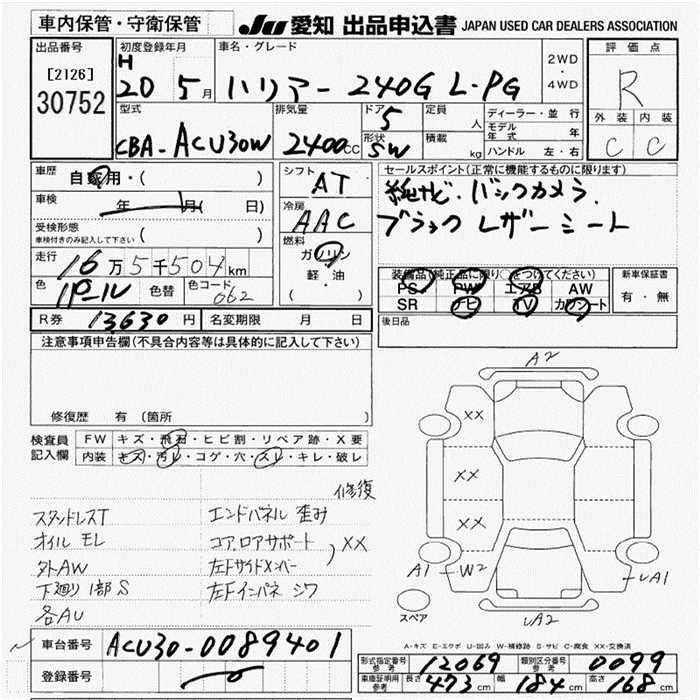 車内保管・守衛保管
JU 愛知 出品申込書 JAPAN USED CAR DEALERS ASSOCIATION
出品番号
[2126]
30752
初度登録年月
H
20 5月
車名・グレード
ハリアー 240G L-PG
2WD
・
4WD
評価点
R
外装 内装
C C
型式
CBA-ACU30W
排気量
2400cc
ドア 5
形状 SW
定員 人
積載 kg
ディーラー・並行
モデル年式 年
ハンドル 左・右
車歴 自家用・( )
車検 年 月( 日)
受検形態
車検付きのみ記入して下さい ( )
走行 16万5千504km
色 パール 色替 色コード 062
シフト AT
冷房 AAC
燃料
ガソリン
軽・油
( )
セールスポイント(正常に機能するものに限ります)
純ナビ、バックカメラ、
ブラックレザーシート
装備品(純正品に限り○をつけてください)
PS PW エアB AW
SR ナビ TV カワシート
新車保証書
有・無
後日品
R券 13630円 名変期限 月 日
注意事項申告欄(不具合内容等は具体的に記入して下さい)
修復歴 有 (箇所 )
検査員記入欄
FW キズ・飛石・ヒビ割・リペア跡・X要
内装 キズ・汚レ・コゲ・穴・スレ・キレ・破レ
修復
スタンドレスT
オイルモレ
外AW
下廻り1部S
各AU
エンドパネル歪み
コア、ロアサポート
左Fサイドメンバー
) XX
左Fインパネ シワ
A2
XX
XX
XX
A1 W2
A1
A2
スペア
A-キズ E-エクボ U-凹み W-補修跡 S-サビ C-腐食 XX-交換済
車台番号 ACU30-0089401
登録番号
形式指定番号 参考 12069
類別区分番号 参考 0099
車庫証明用 参考 長さ 473cm 幅 184cm 高さ 168cm